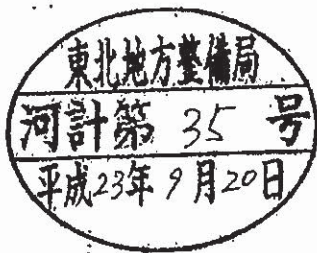 東北地方整備局
河計第 35 号
平成23年9月20日